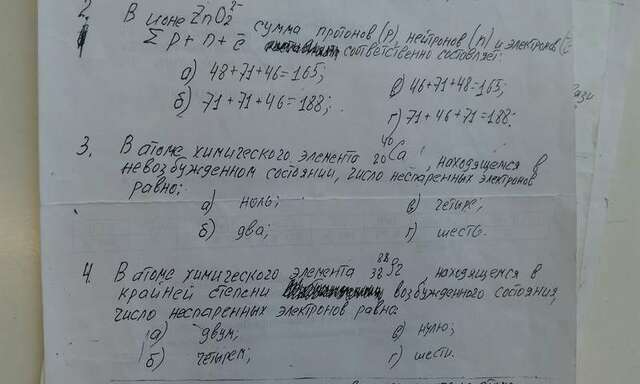 2. В ионе ZnO₂²⁻ сумма протонов (p), нейтронов (n) и электронов (ē
Σ p + n + ē соответственно составляет:
а) 48+71+46=165; в) 46+71+48=165;
б) 71+71+46=188; г) 71+46+71=188.
3. В атоме химического элемента ⁴⁰₂₀Ca, находящемся в
невозбужденном состоянии, число неспаренных электронов
равно:
а) ноль; в) четыре;
б) два; г) шесть.
4. В атоме химического элемента ⁸⁸₃₈Sr, находящемся в
крайней степени возбужденного состояния,
число неспаренных электронов равно:
а) двум; в) нулю;
б) четырем; г) шести.